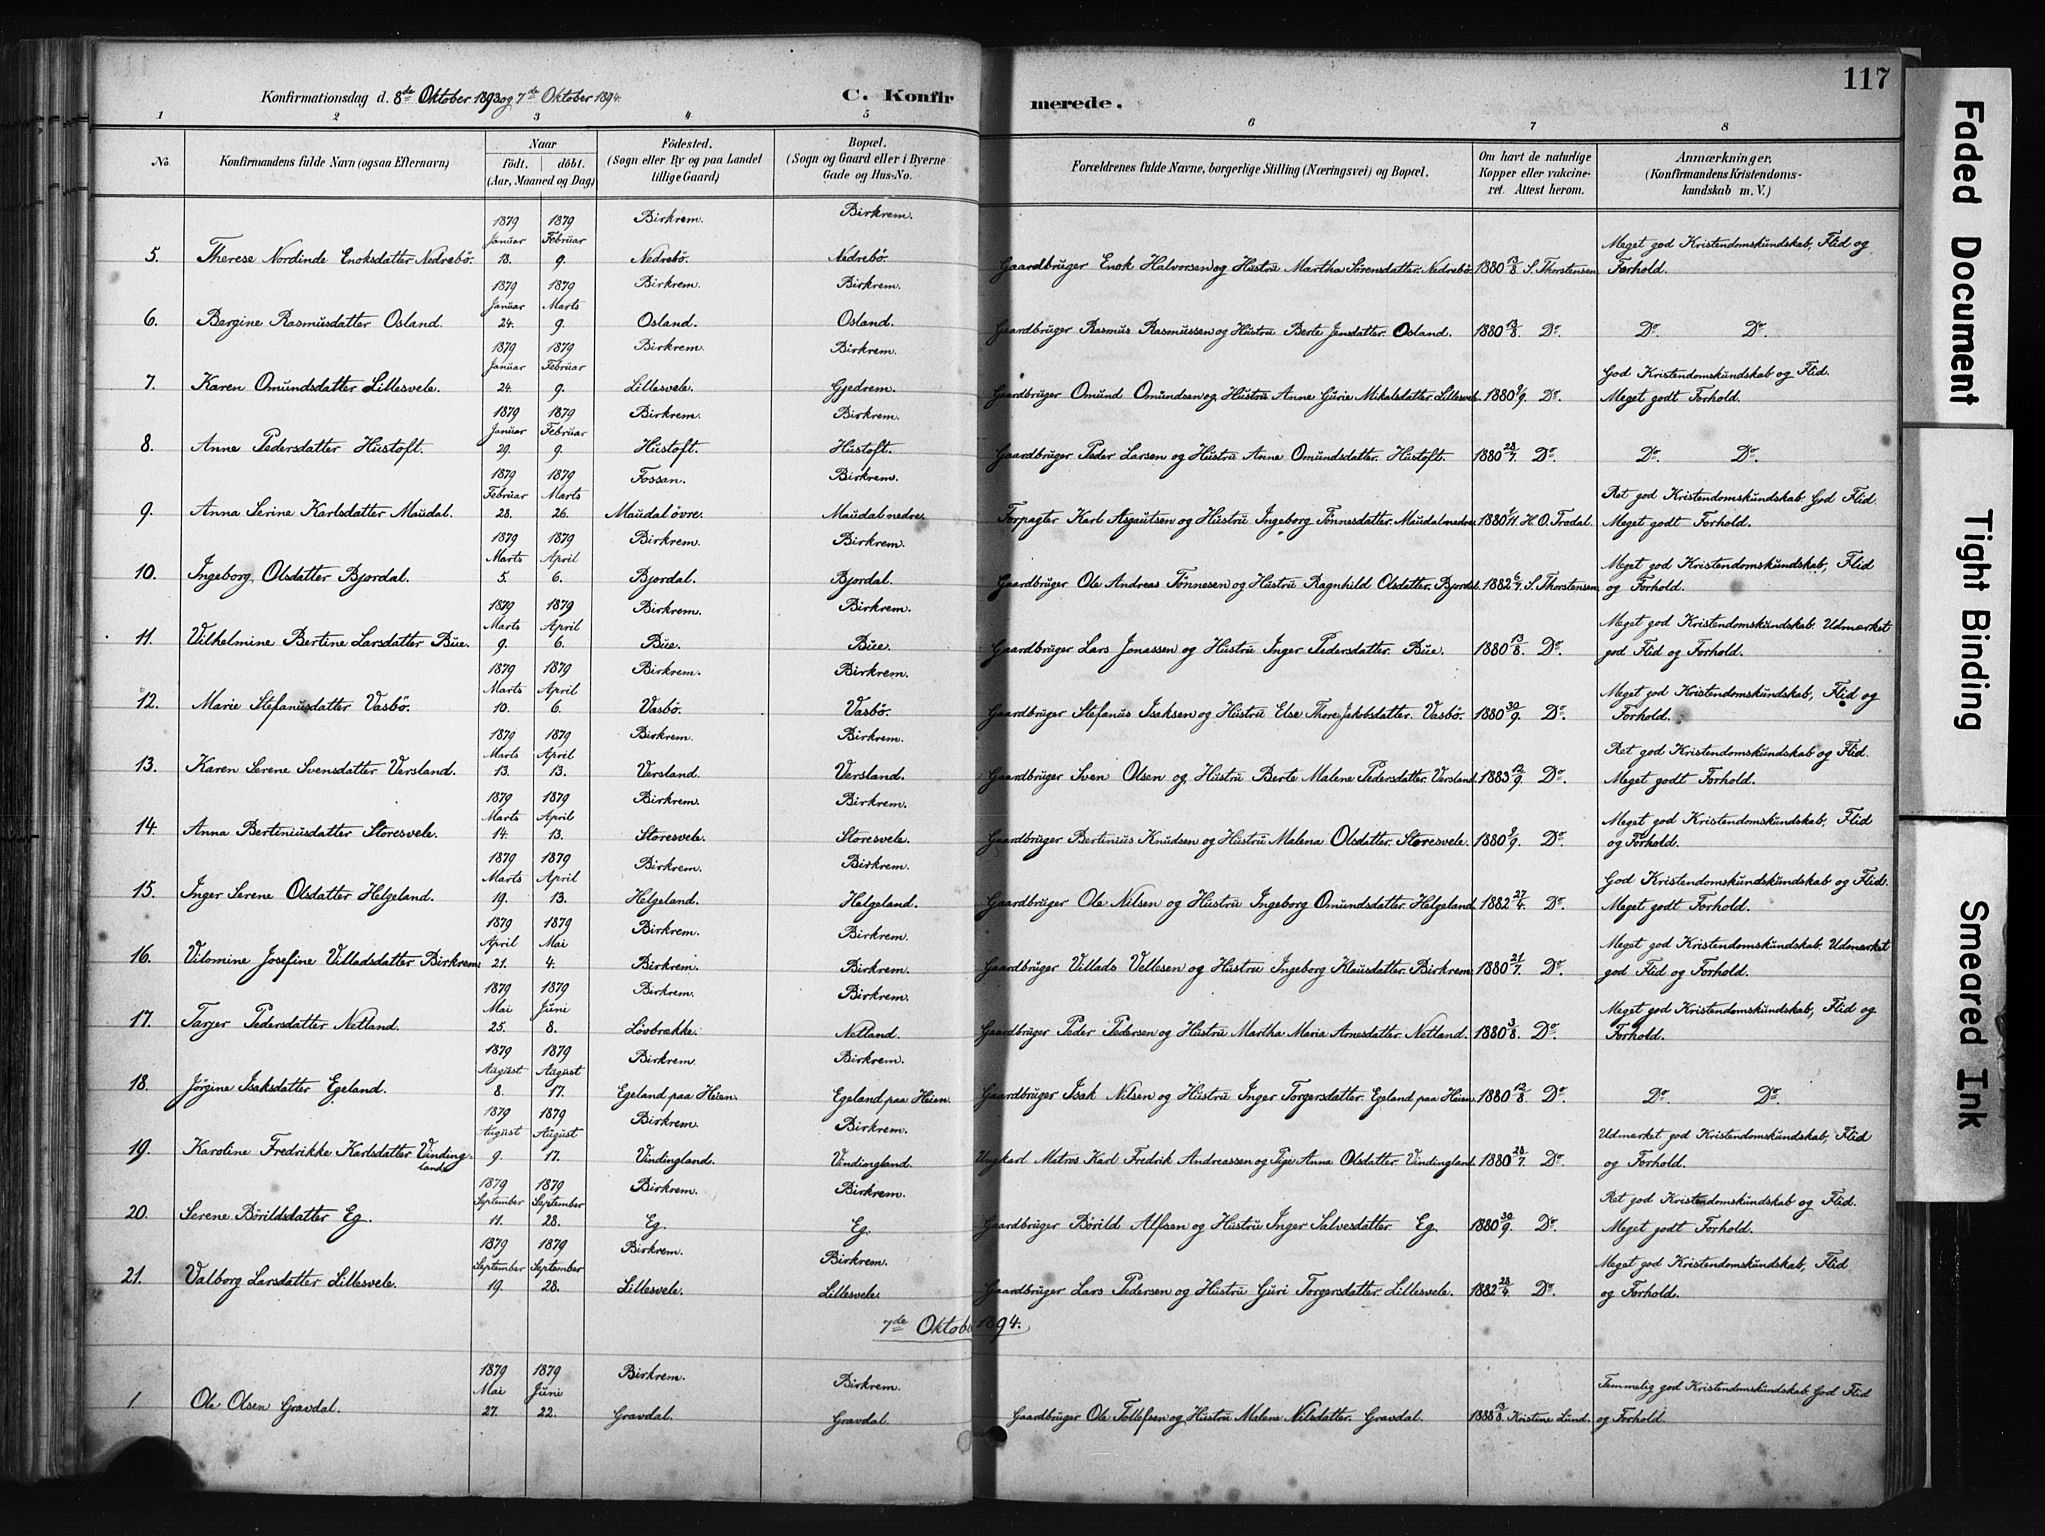 117
Konfirmationsdag d. 8de Oktober 1893 og 7de Oktober 1894.
C. Konfirmerede.
1 2 3 4 5 6 7 8
No. Konfirmandens fulde Navn (ogsaa Efternavn) Naar födt. döbt. (Aar, Maaned og Dag) Födested. (Sogn eller By og paa Landet tillige Gaard) Bopæl. (Sogn og Gaard eller i Byerne Gade og Hus-No. Forældrenes fulde Navne, borgerlige Stilling (Næringsvei) og Bopæl. Om havt de naturlige Kopper eller vakcineret. Attest herom. Anmærkninger. (Konfirmandens Kristendomskundskab m. V.)
1879 1879 Birkrem. Birkrem.
Januar Februar Meget god Kristendomskundskab, Flid og
5. Therese Nordinde Enoksdatter Nedrebö. 18. 9. Nedrebö. Nedrebö. Gaardbruger Enok Halvorsen og Hustru Martha Sörensdatter Nedrebö. 1880 13/8. S. Thorstensen. Forhold.
1879 1879 Birkrem. Birkrem.
Januar Marts
6. Bergine Rasmusdatter Osland. 24. 9. Osland. Osland. Gaardbruger Rasmus Rasmussen og Hustru Berte Jensdatter Osland. 1880 13/8. Do. Do. Do.
1879 1879 Birkrem. Birkrem.
Januar Februar God Kristendomskundskab og Flid.
7. Karen Omundsdatter Lillesvele. 24. 9. Lillesvele. Gjedrem. Gaardbruger Omund Omundsen og Hustru Anne Gurie Mikalsdatter Lillesvele. 1880 9/9. Do. Meget godt Forhold.
1879 1879 Birkrem. Birkrem.
Januar Februar
8. Anne Pedersdatter Hustoft. 29. 9. Hustoft. Hustoft. Gaardbruger Peder Larsen og Hustru Anne Omundsdatter Hustoft. 1880 28/7. Do. Do. Do.
1879 1879 Fossan. Birkrem.
Februar Marts Ret god Kristendomskundskab. God Flid.
9. Anna Serine Karlsdatter Maudal. 28. 26. Maudal övre. Maudal nedre. Forpagter Karl Asgautsen og Hustru Ingeborg Tönnesdatter Maudal nedre. 1880 H. O. Trodal. Meget godt Forhold.
1879 1879 Birkrem. Birkrem.
Marts April Meget god Kristendomskundskab, Flid
10. Ingeborg Olsdatter Bjordal. 5. 6. Bjordal. Bjordal. Gaardbruger Ole Andreas Tönnesen og Hustru Ragnhild Olsdatter Bjordal. 1882 6/7. S. Thorstensen. og Forhold.
1879 1879 Birkrem. Birkrem.
Marts April Meget god Kristendomskundskab. Udmærket
11. Vilhelmine Bertine Larsdatter Bue. 9. 6. Bue. Bue. Gaardbruger Lars Jonassen og Hustru Inger Pedersdatter Bue. 1880 13/8. Do. god Flid og Forhold.
1879 1879 Birkrem. Birkrem.
Marts April Meget god Kristendomskundskab, Flid og
12. Marie Stefanusdatter Vasbö. 10. 6. Vasbö. Vasbö. Gaardbruger Stefanus Isaksen og Hustru Else Thore Jakobsdatter Vasbö. 1880 30/9. Do. Forhold.
1879 1879 Birkrem. Birkrem.
Marts April Ret god Kristendomskundskab og Flid.
13. Karen Serene Svensdatter Versland. 13. 13. Versland. Versland. Gaardbruger Sven Olsen og Hustru Berte Malene Pedersdatter Versland. 1883 12/9. Do. Meget godt Forhold.
1879 1879 Birkrem. Birkrem.
Marts April Meget god Kristendomskundskab, Flid
14. Anna Bertiniusdatter Storesvele. 14. 13. Storesvele. Storesvele. Gaardbruger Bertinius Knudsen og Hustru Malena Olsdatter Storesvele. 1880 9/9. Do. og Forhold.
1879 1879 Birkrem. Birkrem.
Marts April God Kristendomskundskundskab og Flid.
15. Inger Serene Olsdatter Helgeland. 19. 13. Helgeland. Helgeland. Gaardbruger Ole Nilsen og Hustru Ingeborg Omundsdatter Helgeland. 1882 27/4. Do. Meget godt Forhold.
1879 1879 Birkrem. Birkrem.
April Mai Meget god Kristendomskundskab. Udmærket
16. Vilomine Josefine Villadsdatter Birkrem. 21. 4. Birkrem. Birkrem. Gaardbruger Villads Vellesen og Hustru Ingeborg Klausdatter Birkrem. 1880 21/7. Do. god Flid og Forhold.
1879 1879 Birkrem. Birkrem.
Mai Juni Meget god Kristendomskundskab, Flid og
17. Tarjer Pedersdatter Netland. 25. 8. Lövbrække. Netland. Gaardbruger Peder Pedersen og Hustru Martha Maria Arnesdatter Netland. 1880 3/8. Do. Forhold.
1879 1879 Birkrem. Birkrem.
August August
18. Jörgine Isaksdatter Egeland. 8. 17. Egeland paa Heien. Egeland paa Heien. Gaardbruger Isak Nilsen og Hustru Inger Torgersdatter Egeland paa Heien. 1880 12/8. Do. Do. Do.
1879 1879 Birkrem. Birkrem.
August August Udmærket god Kristendomskundskab, Flid
19. Karoline Fredrikke Karlsdatter Vindingland. 9. 17. Vindingland. Vindingland. Ungkarl Matros Karl Fredrik Andreassen og Pige Anna Olsdatter Vindingland. 1880 28/7. Do. og Forhold.
1879 1879 Birkrem. Birkrem.
September September Ret god Kristendomskundskab og Flid.
20. Serene Börildsdatter Eg. 11. 28. Eg. Eg. Gaardbruger Börild Alfsen og Hustru Inger Salvesdatter Eg. 1880 30/9. Do. Meget godt Forhold.
1879 1879 Birkrem. Birkrem.
September September Meget god Kristendomskundskab, Flid
21. Valborg Larsdatter Lillesvele. 19. 28. Lillesvele. Lillesvele. Gaardbruger Lars Pedersen og Hustru Guri Torgersdatter Lillesvele. 1882 28/4. Do. og Forhold.
7de Oktober 1894.
1879 1879 Birkrem. Birkrem.
Mai Juni Temmelig god Kristendomskundskab. God Flid
1. Ole Olsen Gravdal. 27. 22. Gravdal. Gravdal. Gaardbruger Ole Tollefsen og Hustru Malene Nilsdatter Gravdal. 1888 13/8. Kristine Lund. og Forhold.
Faded Document
Tight Binding
Smeared Ink